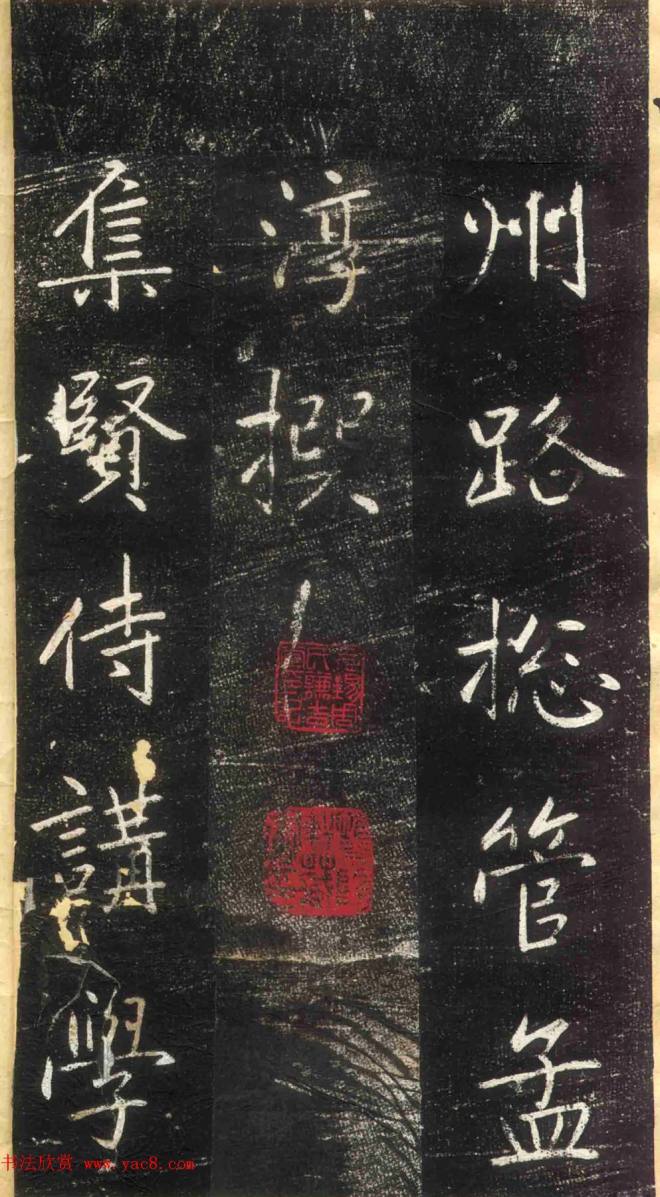 州路揔管孟
淳撰
集賢侍講學
书法欣赏 www.yac8.com